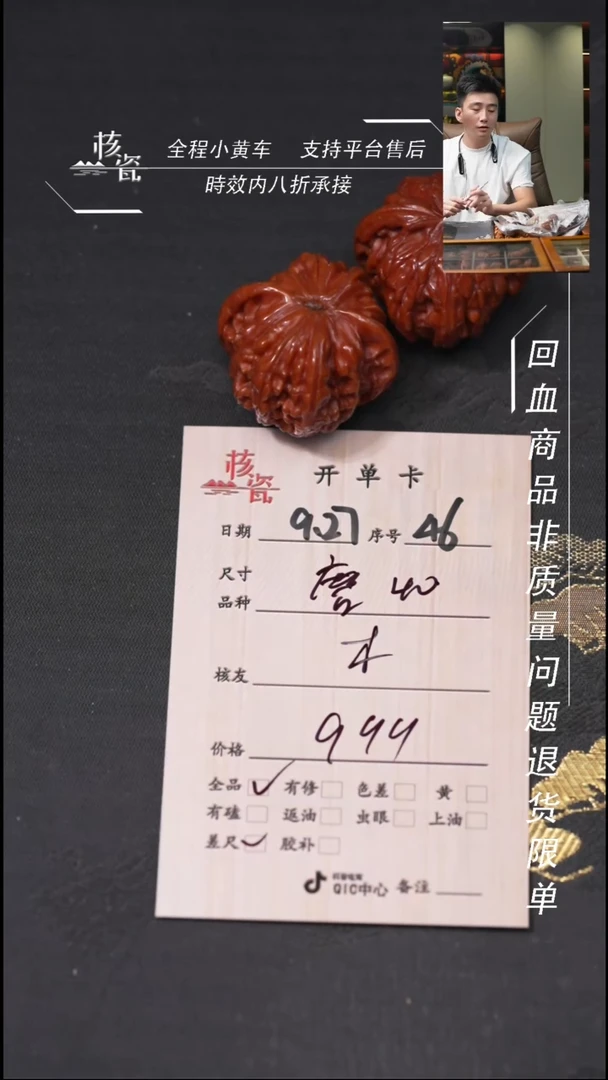 核瓷
全程小黄车 支持平台售后
時效内八折承接
回血商品非质量问题退货限单
核瓷
开单卡
日期 927 序号 46
尺寸
品种 磨 40
核友 木
价格 944
全品 有修 色差 黄
有磕 返油 虫眼 上油
差尺 胶补
抖音电商
QIC中心 备注